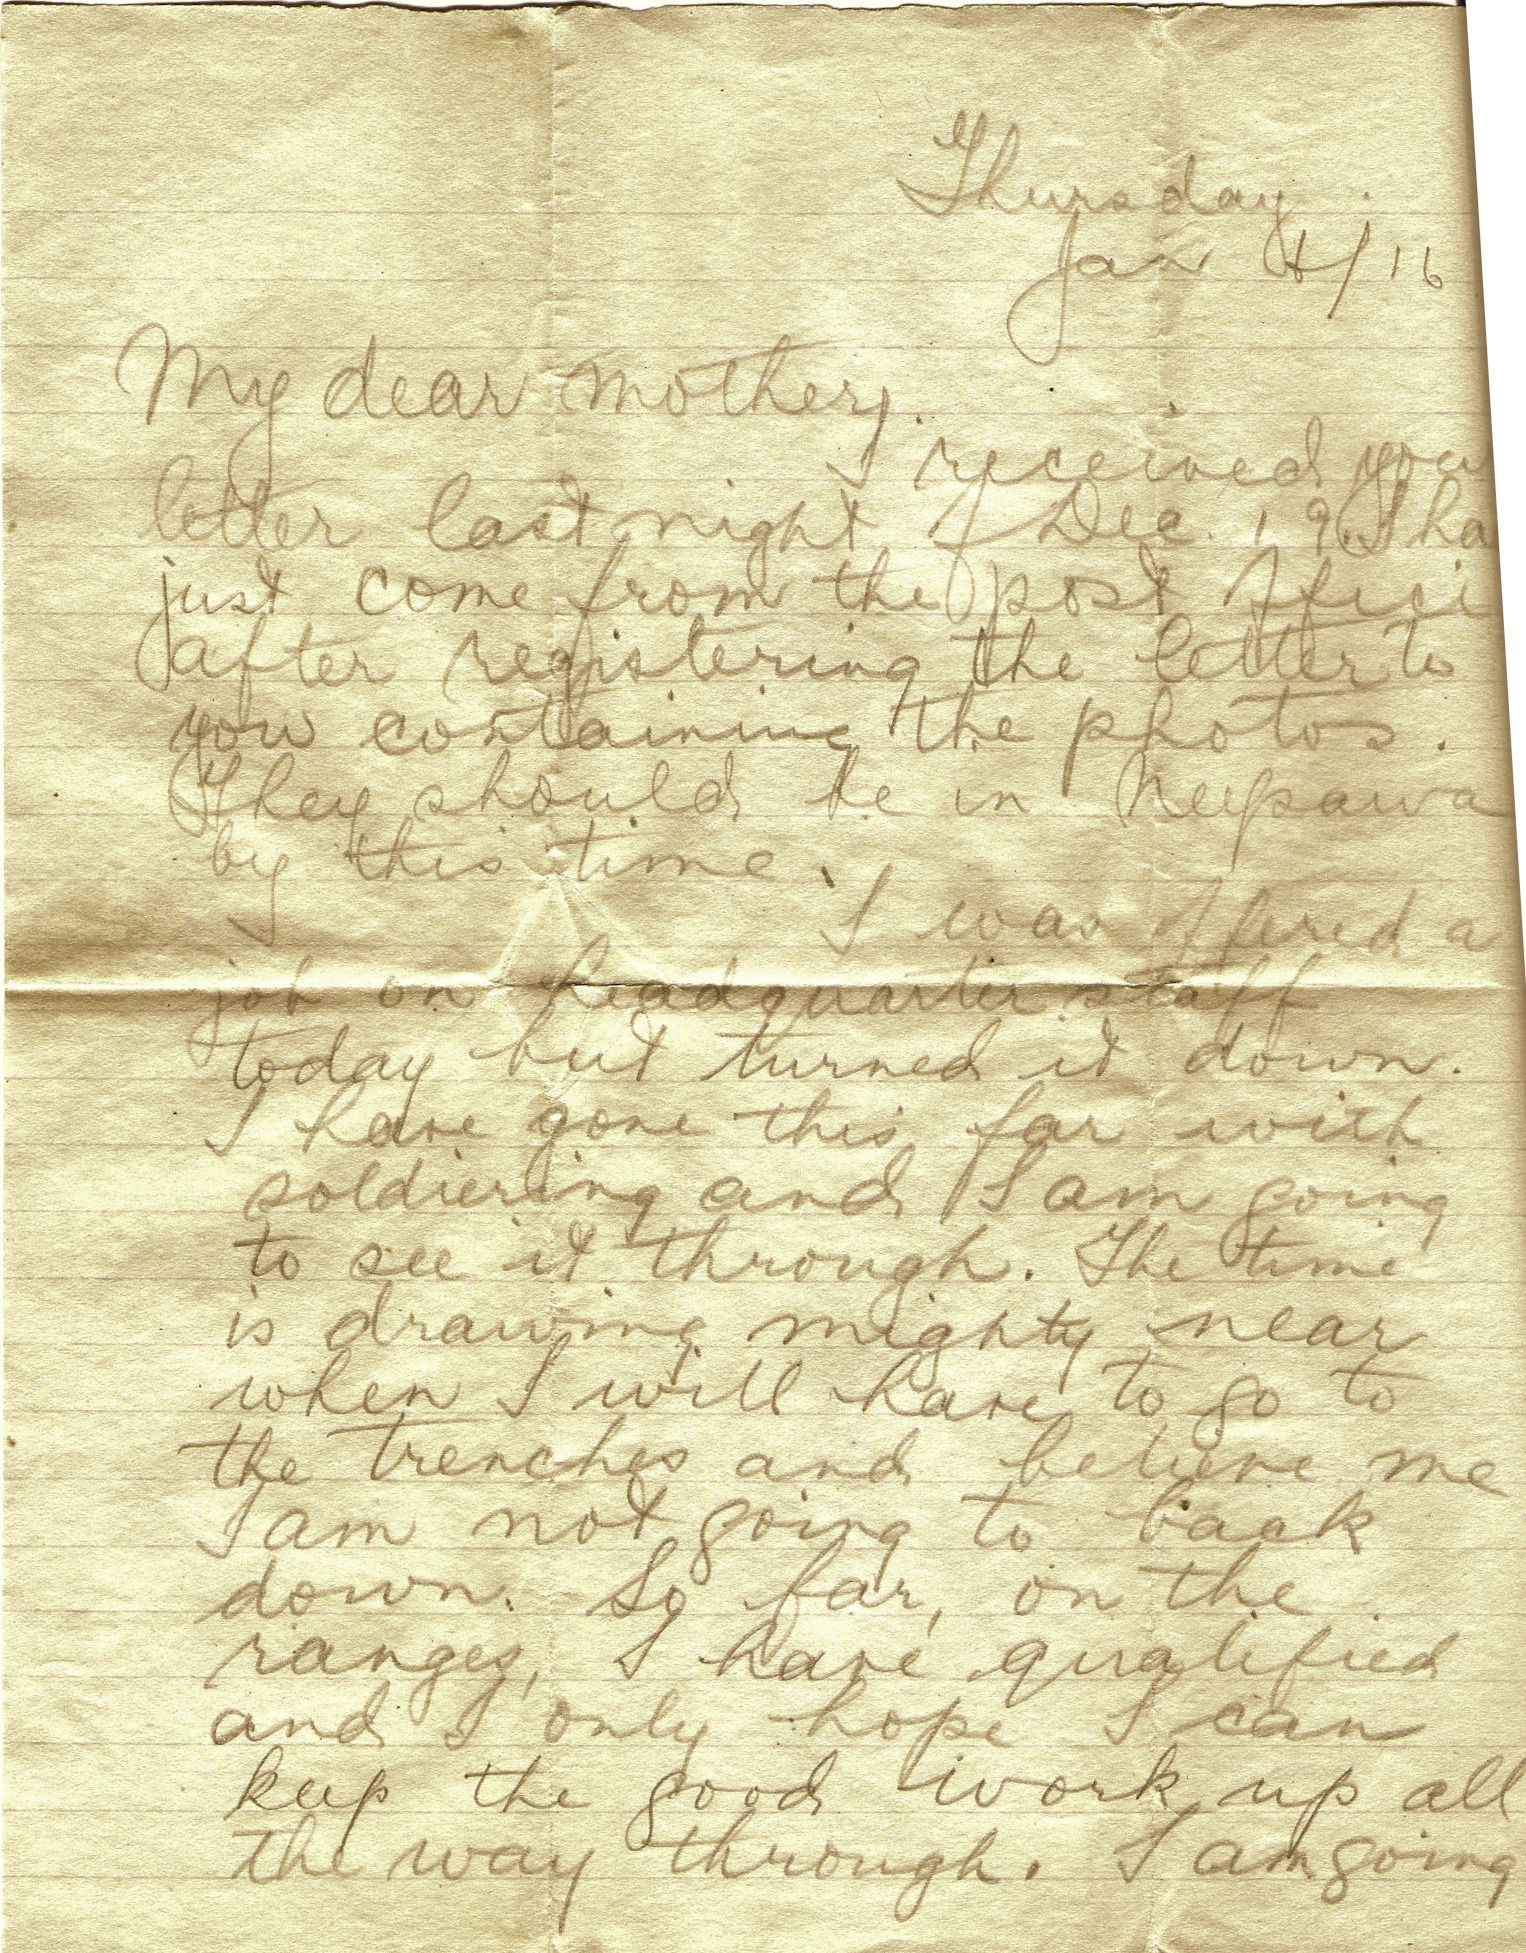 Thursday
Jan 6/16
My dear mother,
I received your
letter last night of Dec. 19. I ha
just come from the post office
after registering the letter to
you containing the photos.
They should be in Neepawa
by this time.
I was offered a
job on headquarter staff
today but turned it down.
I have gone this far with
soldiering and I am going
to see it through. The time
is drawing mighty near
when I will have to go to
the trenches and believe me
I am not going to back
down. So far, on the
ranges, I have qualified
and I only hope I can
keep the good work up all
the way through. I am going